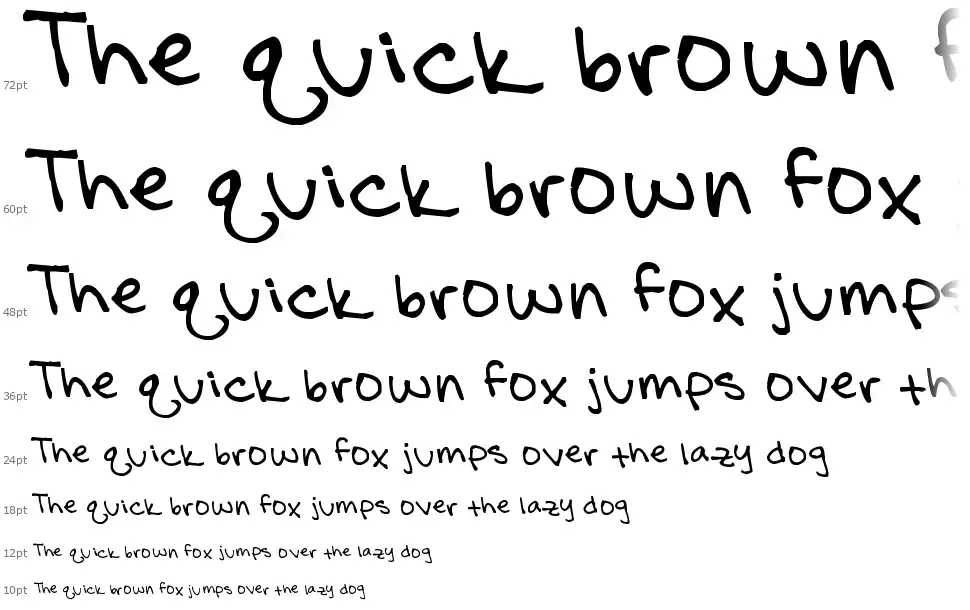 72pt The quick brown f
60pt The quick brown fox
48pt The quick brown fox jumps
36pt The quick brown fox jumps over th
24pt The quick brown fox jumps over the lazy dog
18pt The quick brown fox jumps over the lazy dog
12pt The quick brown fox jumps over the lazy dog
10pt The quick brown fox jumps over the lazy dog